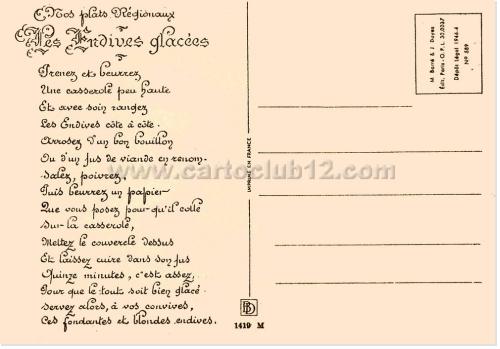 Nos plats Régionaux
Les Endives glacées
Prenez et beurrez
Une casserole peu haute
Et avec soin rangez
Les Endives côte à côte.
Arrosez d'un bon bouillon
Ou d'un jus de viande en renom.
Salez, poivrez,
Puis beurrez un papier
Que vous posez pour qu'il colle
Sur la casserole,
Mettez le couvercle dessus
Et laissez cuire dans son jus
Quinze minutes, c'est assez,
Pour que le tout soit bien glacé.
Servez alors, à vos convives,
Ces fondantes et blondes endives.
www.cartoclub12.com
IMPRIMÉ EN FRANCE
BD
1419 M
M. Barré & J. Dayez
Édit. Paris - O.P.L. 30.0037
Dépôt légal 1946-4
N° 589